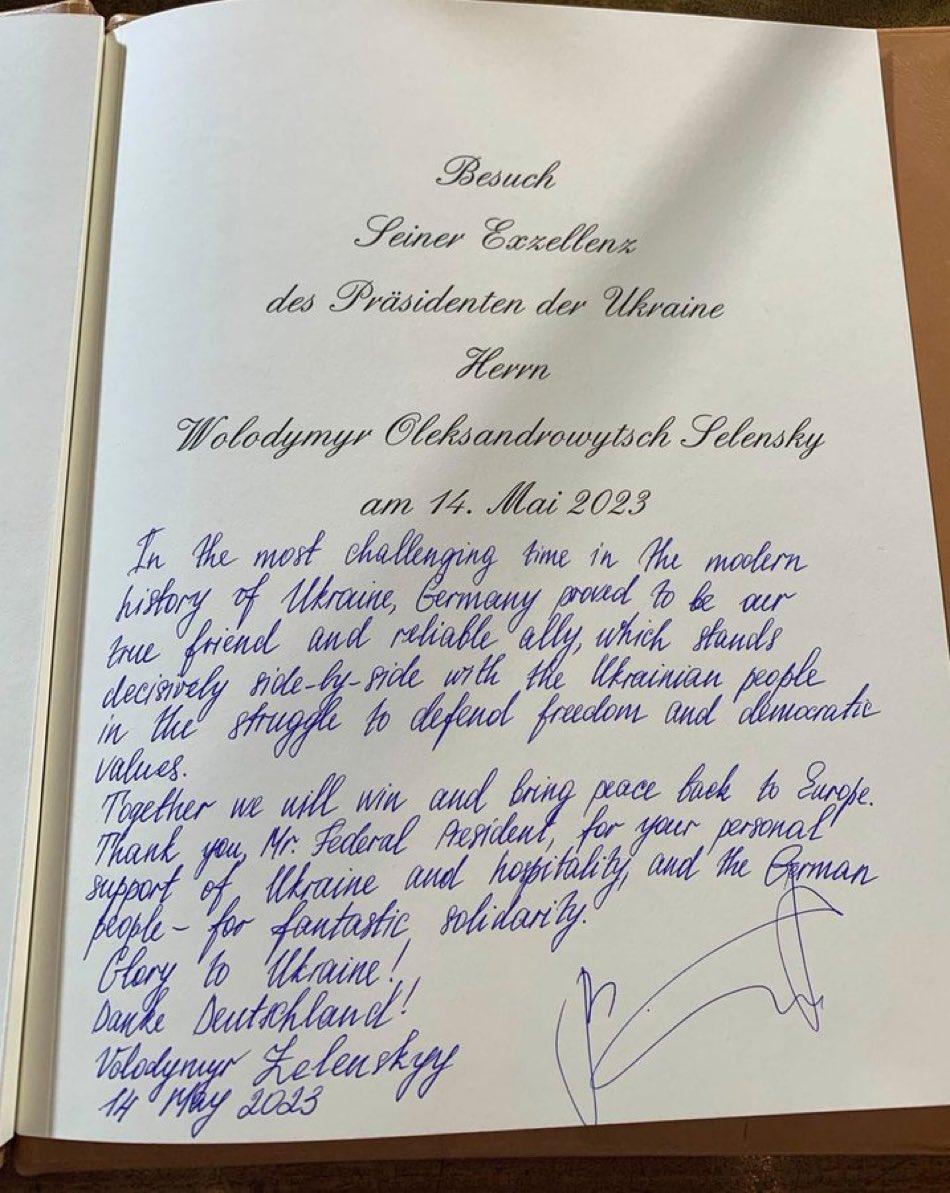 Besuch
Seiner Exzellenz
des Präsidenten der Ukraine
Herrn
Wolodymyr Oleksandrowytsch Selensky
am 14. Mai 2023
In the most challenging time in the modern
history of Ukraine, Germany proved to be our
true friend and reliable ally, which stands
decisively side-by-side with the Ukrainian people
in the struggle to defend freedom and democratic
values.
Together we will win and bring peace back to Europe.
Thank you, Mr. Federal President, for your personal
support of Ukraine and hospitality, and the German
people - for fantastic solidarity.
Glory to Ukraine!
Danke Deutschland!
Volodymyr Zelenskyy
14 May 2023